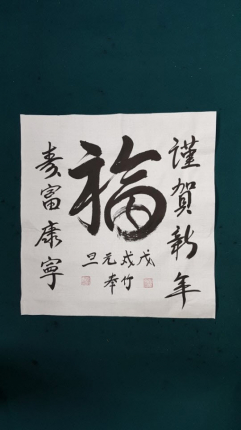 謹賀新年
福
戊戌元旦
竹
寿富康寧